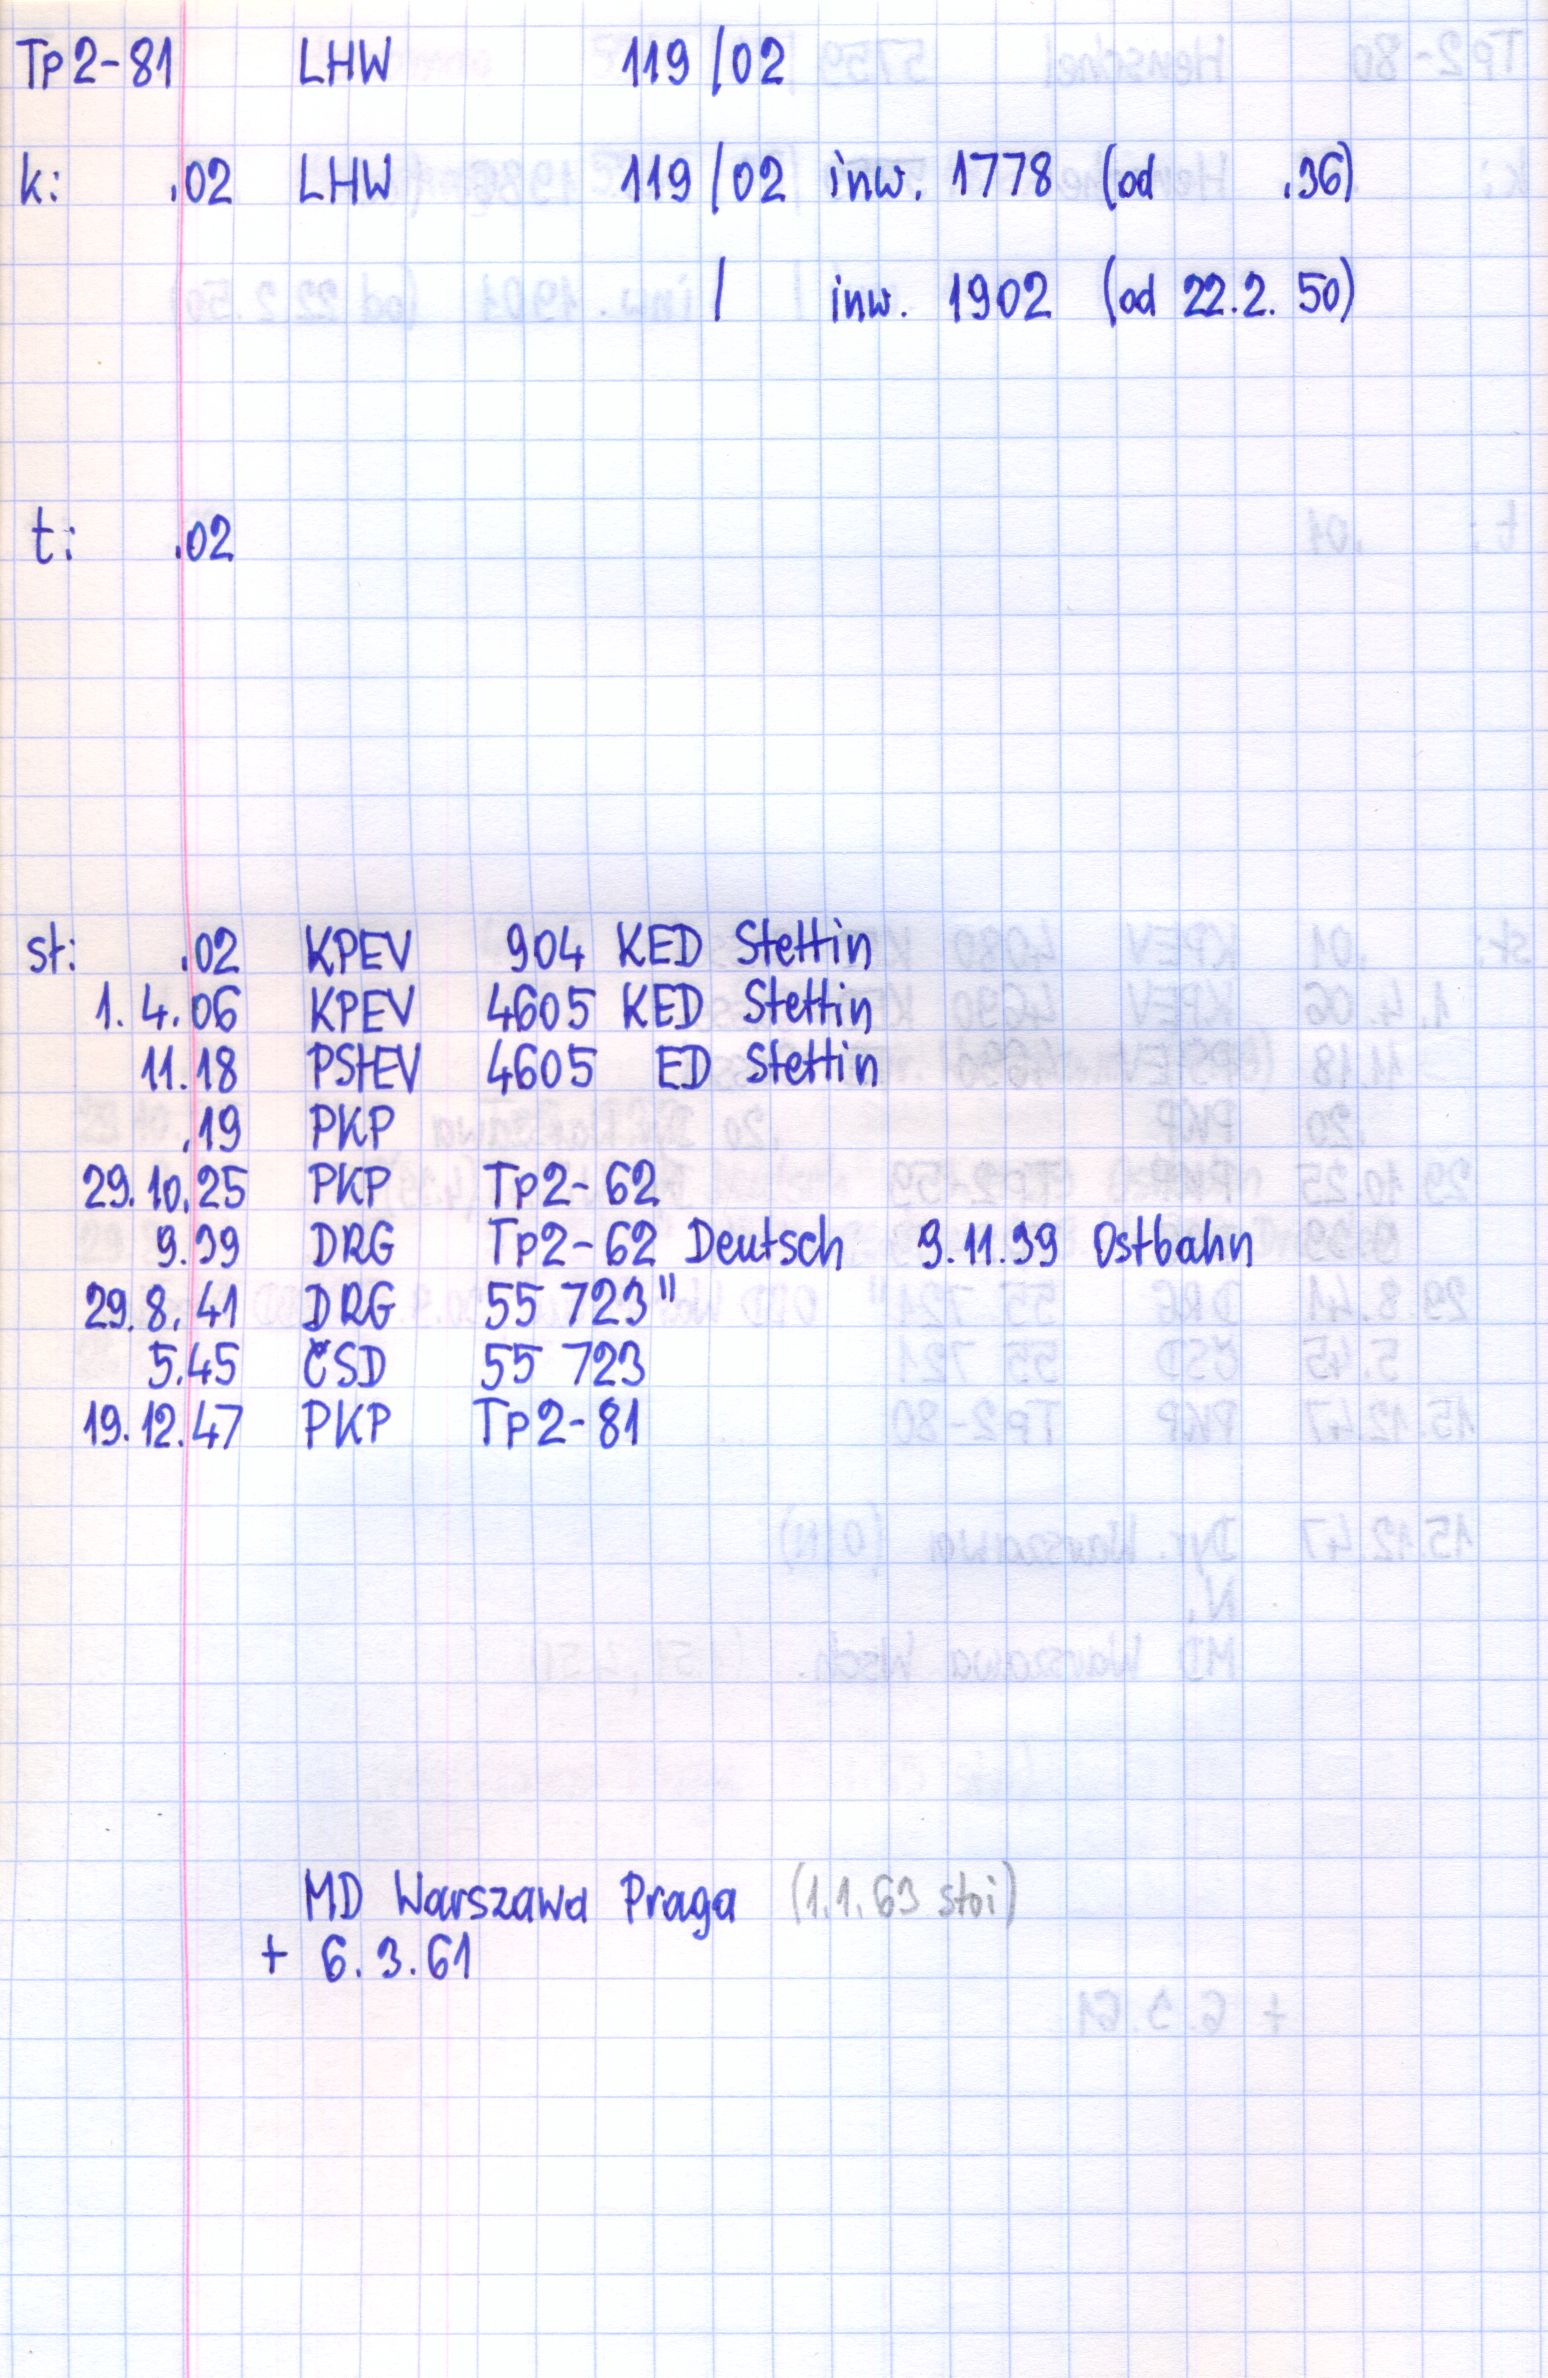 Tp2-81 LHW 119/02
k: .02 LHW 119/02 inw. 1778 (od .36)
/ inw. 1902 (od 22.2.50)
t: .02
st: .02 KPEV 904 KED Stettin
1.4.06 KPEV 4605 KED Stettin
11.18 PStEV 4605 ED Stettin
.19 PKP
29.10.25 PKP Tp2-62
9.39 DRG Tp2-62 Deutsch 9.11.39 Ostbahn
29.8.41 DRG 55 723"
5.45 ČSD 55 723
19.12.47 PKP Tp2-81
MD Warszawa Praga (1.1.63 stoi)
+ 6.3.61